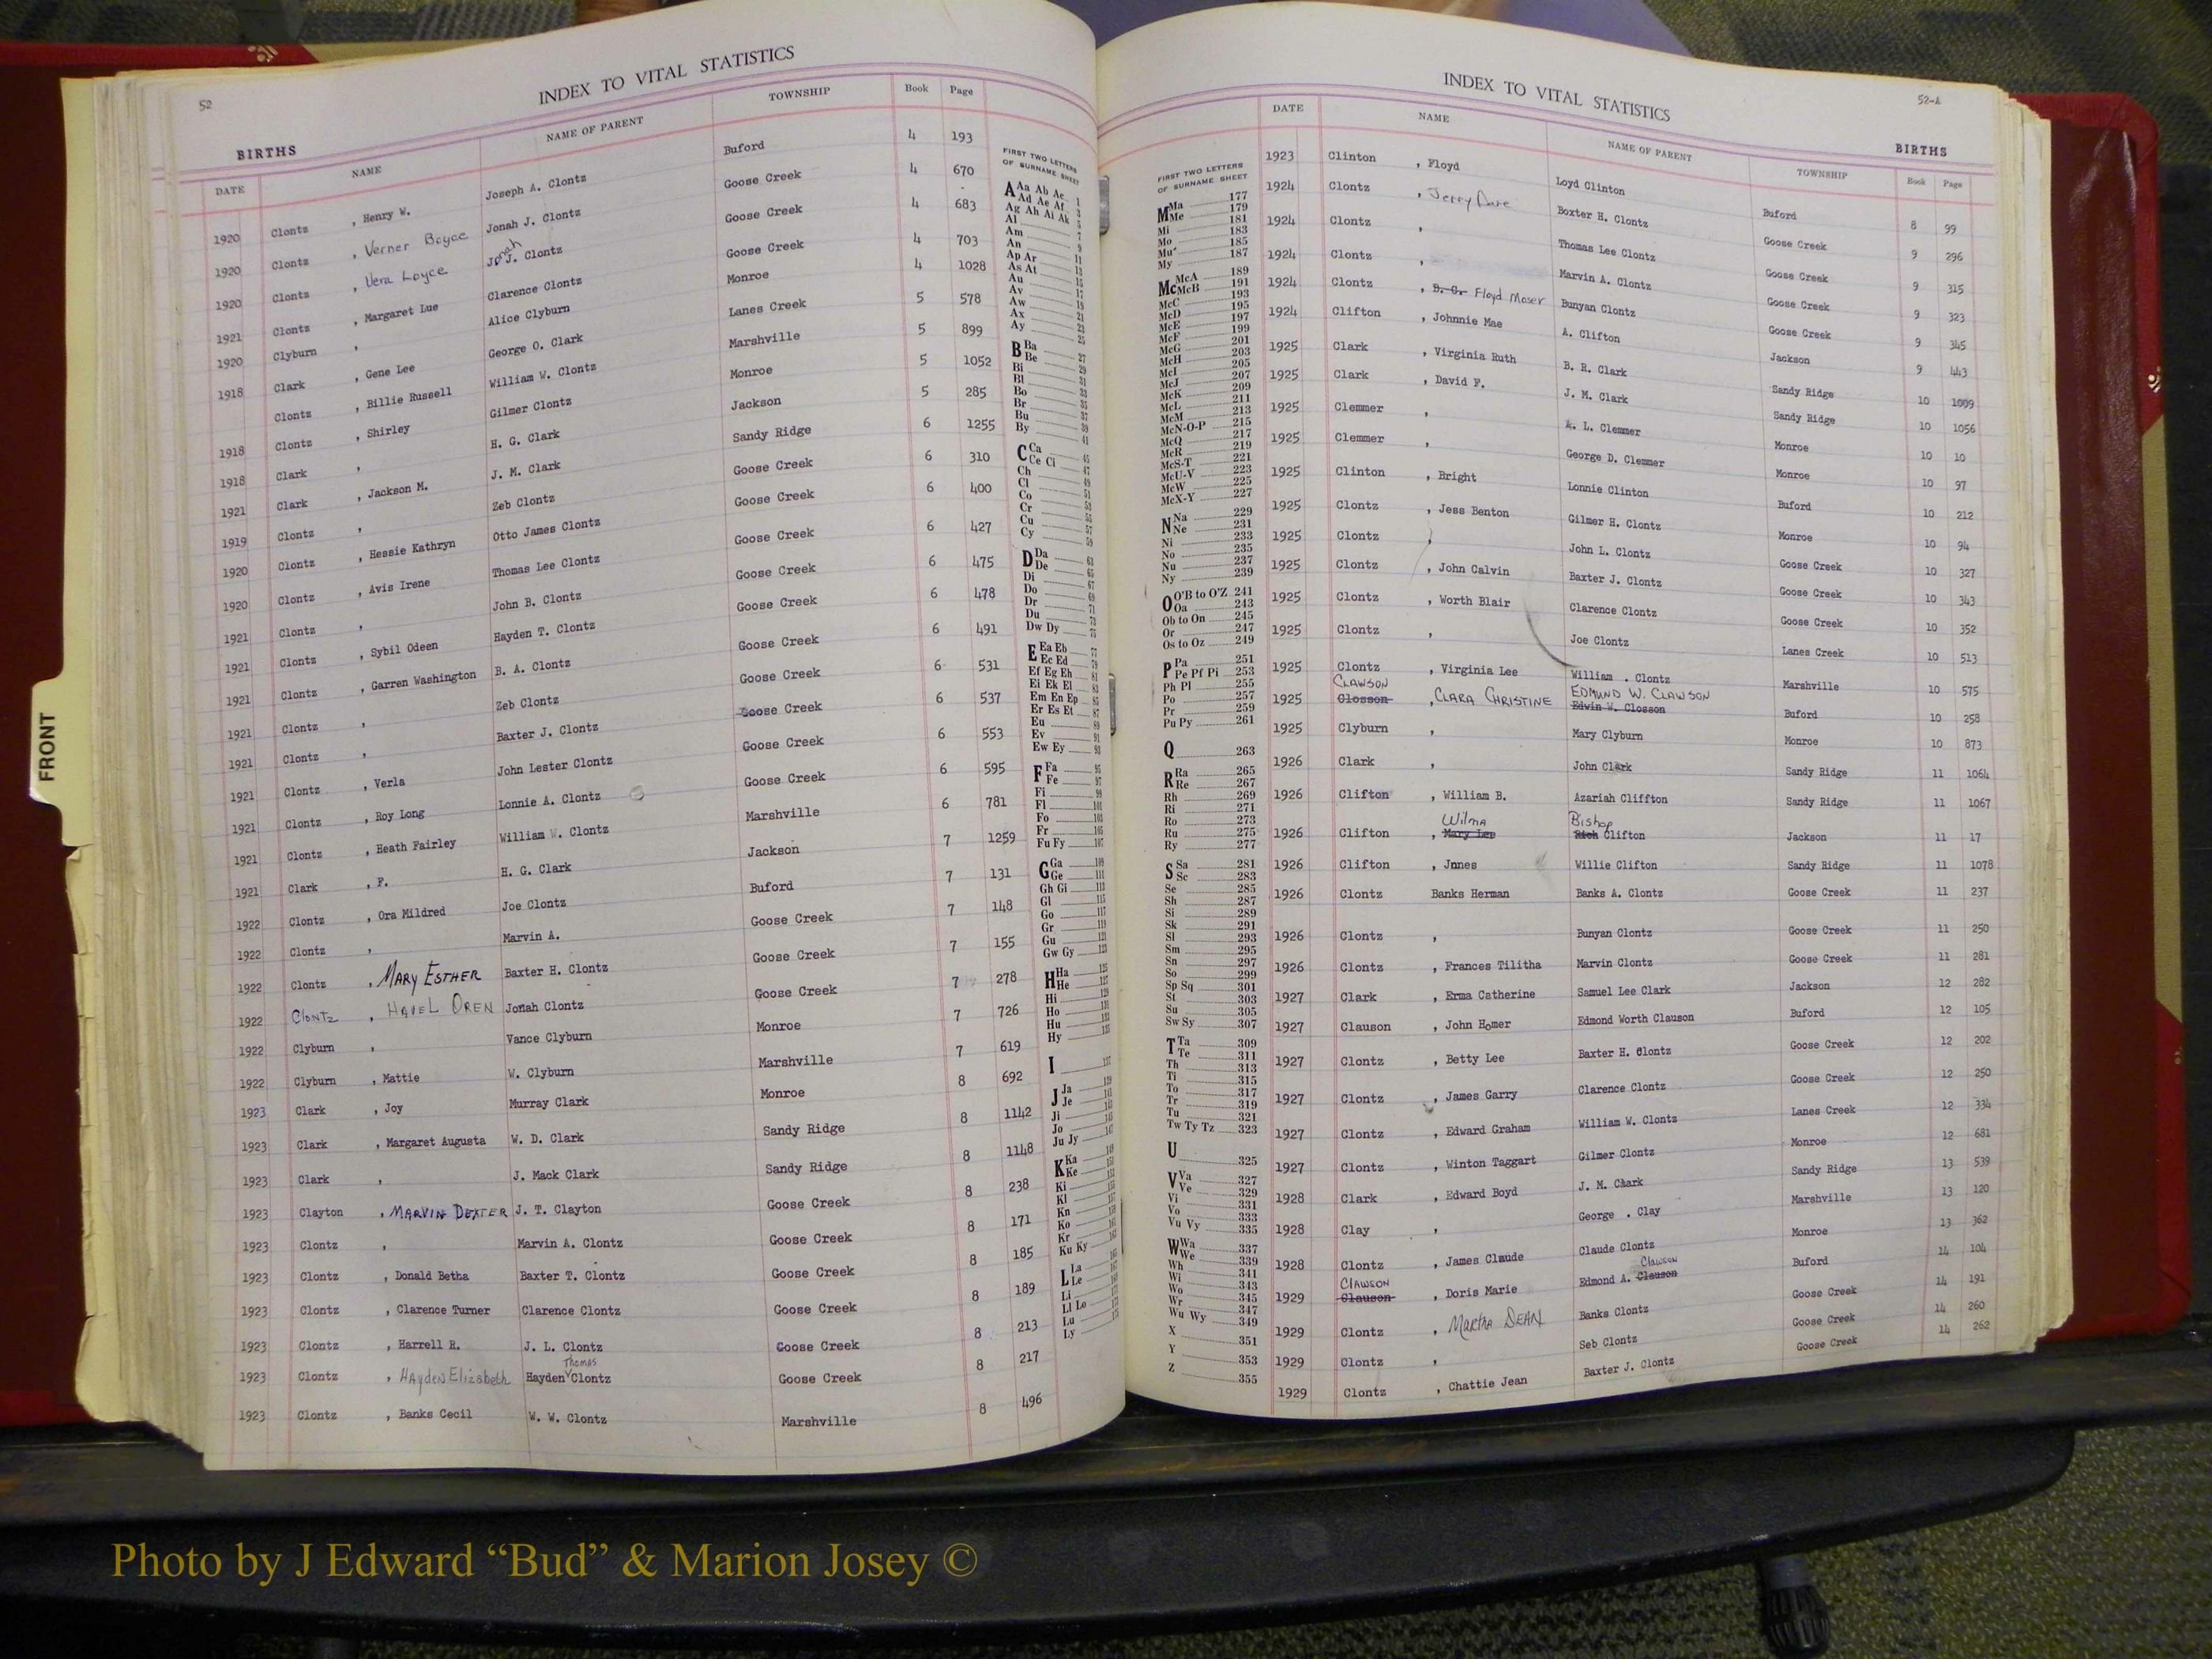 52
INDEX TO VITAL STATISTICS
BIRTHS
DATE NAME NAME OF PARENT TOWNSHIP Book Page
1920 Clontz , Henry W. Joseph A. Clontz Buford 4 193
1920 Clontz , Verner Boyce Jonah J. Clontz Goose Creek 4 670
1920 Clontz , Vera Loyce Jonah J. Clontz Goose Creek 4 683
1921 Clontz , Margaret Lue Clarence Clontz Goose Creek 4 703
1920 Clyburn , Alice Clyburn Monroe 4 1028
1918 Clark , Gene Lee George O. Clark Lanes Creek 5 578
Clontz , Billie Russell William W. Clontz Marshville 5 899
1918 Clontz , Shirley Gilmer Clontz Monroe 5 1052
1918 Clark , H. G. Clark Jackson 5 285
1921 Clark , Jackson M. J. M. Clark Sandy Ridge 6 1255
1919 Clontz , Zeb Clontz Goose Creek 6 310
1920 Clontz , Hessie Kathryn Otto James Clontz Goose Creek 6 400
1920 Clontz , Avis Irene Thomas Lee Clontz Goose Creek 6 427
1921 Clontz , John B. Clontz Goose Creek 6 475
1921 Clontz , Sybil Odeen Hayden T. Clontz Goose Creek 6 478
1921 Clontz , Garren Washington B. A. Clontz Goose Creek 6 491
1921 Clontz , Zeb Clontz Goose Creek 6 531
1921 Clontz , Baxter J. Clontz Goose Creek 6 537
1921 Clontz , Verla John Lester Clontz Goose Creek 6 553
1921 Clontz , Roy Long Lonnie A. Clontz Goose Creek 6 595
1921 Clontz , Heath Fairley William W. Clontz Marshville 6 781
1921 Clark , F. H. G. Clark Jackson 7 1259
1922 Clontz , Ora Mildred Joe Clontz Buford 7 131
1922 Clontz , Marvin A. Goose Creek 7 148
1922 Clontz , MARY ESTHER Baxter H. Clontz Goose Creek 7 155
1922 Clontz , HAVEL OREN Jonah Clontz Goose Creek 7 278
1922 Clyburn , Vance Clyburn Monroe 7 726
1922 Clyburn , Mattie W. Clyburn Marshville 7 619
1923 Clark , Joy Murray Clark Monroe 8 692
1923 Clark , Margaret Augusta W. D. Clark Sandy Ridge 8 1142
1923 Clark , J. Mack Clark Sandy Ridge 8 1148
1923 Clayton , MARVIN DEXTER J. T. Clayton Goose Creek 8 238
1923 Clontz , Marvin A. Clontz Goose Creek 8 171
1923 Clontz , Donald Betha Baxter T. Clontz Goose Creek 8 185
1923 Clontz , Clarence Turner Clarence Clontz Goose Creek 8 189
1923 Clontz , Harrell R. J. L. Clontz Goose Creek 8 213
1923 Clontz , Hayden Elizabeth Hayden Thomas Clontz Goose Creek 8 217
1923 Clontz , Banks Cecil W. W. Clontz Marshville 8 496
FIRST TWO LETTERS
OF SURNAME SHEET
A Aa Ab Ac 1
Ad Ae Af 3
Ag Ah Ai Ak 5
Al 7
Am 9
An 11
Ap Ar 13
As At 15
Au 17
Av 19
Aw 21
Ax 23
Ay 25
B Ba 27
Be 29
Bi 31
Bl 33
Bo 35
Br 37
Bu 39
By 41
C Ca 45
Ce Ci 47
Ch 49
Cl 51
Co 53
Cr 55
Cu 57
Cy 59
D Da 63
De 65
Di 67
Do 69
Dr 71
Du 73
Dw Dy 75
E Ea Eb 77
Ec Ed 79
Ef Eg Eh 81
Ei Ek El 83
Em En Ep 85
Er Es Et 87
Eu 89
Ev 91
Ew Ey 93
F Fa 95
Fe 97
Fi 99
Fl 101
Fo 103
Fr 105
Fu Fy 107
G Ga 109
Ge 111
Gh Gi 113
Gl 115
Go 117
Gr 119
Gu 121
Gw Gy 123
H Ha 125
He
Hi
Ho
Hu
Hy
I
J Ja
Je
Ji
Jo
Ju Jy
K Ka
Ke
Ki
Kl
Kn
Ko
Kr
Ku Ky
L La
Le
Li
Ll Lo
Lu
Ly
FRONT
INDEX TO VITAL STATISTICS
52-A
BIRTHS
DATE NAME NAME OF PARENT TOWNSHIP Book Page
FIRST TWO LETTERS
OF SURNAME SHEET
M Ma 177
Me 179
Mi 181
Mo 183
Mu 185
My 187
Mc McA 189
McB 191
McC 193
McD 195
McE 197
McF 199
McG 201
McH 203
McI 205
McJ 207
McK 209
McL 211
McM 213
McN-O-P 215
McQ 217
McR 219
McS-T 221
McU-V 223
McW 225
McX-Y 227
N Na 229
Ne 231
Ni 233
No 235
Nu 237
Ny 239
O O'B to O'Z 241
Oa 243
Ob to On 245
Or 247
Os to Oz 249
P Pa 251
Pe Pf Pi 253
Ph Pl 255
Po 257
Pr 259
Pu Py 261
Q 263
R Ra 265
Re 267
Rh 269
Ri 271
Ro 273
Ru 275
Ry 277
S Sa 281
Sc 283
Se 285
Sh 287
Si 289
Sk 291
Sl 293
Sm 295
Sn 297
So 299
Sp Sq 301
St 303
Su 305
Sw Sy 307
T Ta 309
Te 311
Th 313
Ti 315
To 317
Tr 319
Tu 321
Tw Ty Tz 323
U 325
V Va 327
Ve 329
Vi 331
Vo 333
Vu Vy 335
W Wa 337
We 339
Wh 341
Wi 343
Wo 345
Wr 347
Wu Wy 349
X 351
Y 353
Z 355
1923 Clinton , Floyd Loyd Clinton Buford 8 99
1924 Clontz , Jerry Dare Boxter H. Clontz Goose Creek 9 296
1924 Clontz , Thomas Lee Clontz Goose Creek 9 315
1924 Clontz , Marvin A. Clontz Goose Creek 9 323
1924 Clontz , B. G. Floyd Moser Bunyan Clontz Goose Creek 9 345
1924 Clifton , Johnnie Mae A. Clifton Jackson 9 443
1925 Clark , Virginia Ruth B. R. Clark Sandy Ridge 10 1009
1925 Clark , David F. J. M. Clark Sandy Ridge 10 1056
1925 Clemmer , A. L. Clemmer Monroe 10 10
1925 Clemmer , George D. Clemmer Monroe 10 97
1925 Clinton , Bright Lonnie Clinton Buford 10 212
1925 Clontz , Jess Benton Gilmer H. Clontz Monroe 10 94
1925 Clontz , John L. Clontz Goose Creek 10 327
1925 Clontz , John Calvin Baxter J. Clontz Goose Creek 10 343
1925 Clontz , Worth Blair Clarence Clontz Goose Creek 10 352
1925 Clontz , Joe Clontz Lanes Creek 10 513
1925 Clontz , Virginia Lee William . Clontz Marshville 10 575
CLAWSON EDMUND W. CLAWSON
1925 Closson , CLARA CHRISTINE Edwin W. Closson Buford 10 258
1925 Clyburn , Mary Clyburn Monroe 10 873
1926 Clark , John Clark Sandy Ridge 11 1064
1926 Clifton , William B. Azariah Cliffton Sandy Ridge 11 1067
Wilma Bishop
1926 Clifton , Mary Lee Rich Clifton Jackson 11 17
1926 Clifton , Jnnes Willie Clifton Sandy Ridge 11 1078
1926 Clontz Banks Herman Banks A. Clontz Goose Creek 11 237
1926 Clontz , Bunyan Clontz Goose Creek 11 250
1926 Clontz , Frances Tilitha Marvin Clontz Goose Creek 11 281
1927 Clark , Erma Catherine Samuel Lee Clark Jackson 12 282
1927 Clauson , John Homer Edmond Worth Clauson Buford 12 105
1927 Clontz , Betty Lee Baxter H. Clontz Goose Creek 12 202
1927 Clontz , James Garry Clarence Clontz Goose Creek 12 250
1927 Clontz , Edward Graham William W. Clontz Lanes Creek 12 334
1927 Clontz , Winton Taggart Gilmer Clontz Monroe 12 681
1928 Clark , Edward Boyd J. M. Clark Sandy Ridge 13 539
1928 Clay , George . Clay Marshville 13 120
1928 Clontz , James Claude Claude Clontz Monroe 13 362
Clawson Clawson
1929 Clauson , Doris Marie Edmond A. Clauson Buford 14 104
1929 Clontz , Martha DEAN Banks Clontz Goose Creek 14 191
1929 Clontz , Seb Clontz Goose Creek 14 260
1929 Clontz , Chattie Jean Baxter J. Clontz Goose Creek 14 262
Photo by J Edward “Bud” & Marion Josey ©